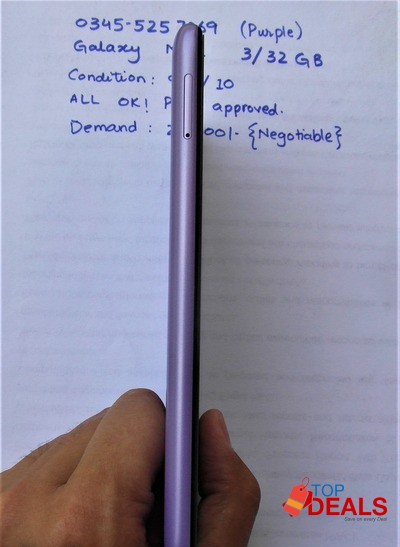 0345-525 69 (Purple)
Galaxy 3/32 GB
Condition: /10
ALL OK! approved.
Demand: 00/- {Negotiable}
TOP
DEALS
Save on every Deal